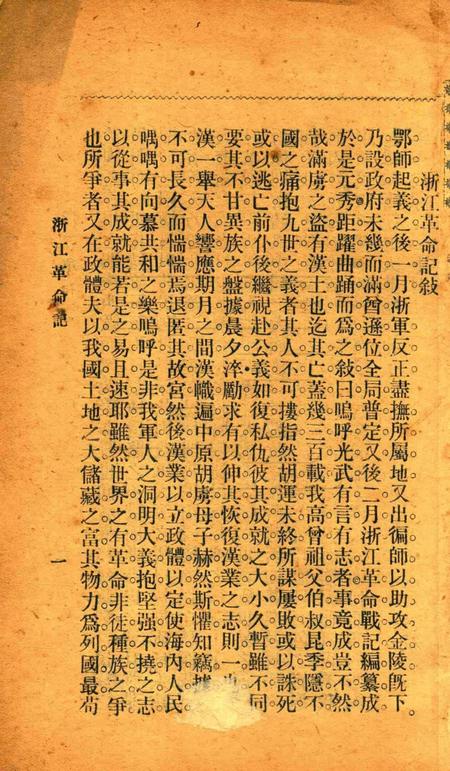 浙江革命記敍
鄂師起義之後一月浙軍反正盡撫所屬地又出偏師以助攻金陵旣下。
乃設政府未幾而滿酋遜位全局普定又後二月浙江革命戰記編纂成。
於是元秀距躍曲踊而爲之敍曰嗚呼光武有言有志者事竟成豈不然
哉滿虜之盜有漢土也迄其亡蓋幾三百載我高曾祖父伯叔昆季隱不
國之痛抱九世之義者其人不可摟指然胡運未終所謀屢敗或以誅死
或以逃亡前仆後繼視赴公義如復私仇彼其成就之大小久暫雖不同。
要其不甘異族之盤據晨夕淬勵求有以伸其恢復漢業之志則一也
漢一舉天人響應期月之間漢幟遍中原胡虜母子赫然斯懼知竊據
不可長久而惴惴焉退匿其故宮然後漢業以立政體以定使海內人民
喁喁有向慕共和之樂嗚呼是非我軍人之洞明大義抱堅强不撓之志
以從事其成就能若是之易且速耶雖然世界之有革命非徒種族之爭
也所爭者又在政體夫以我國土地之大儲藏之富其物力爲列國最苟
浙江革命記
一